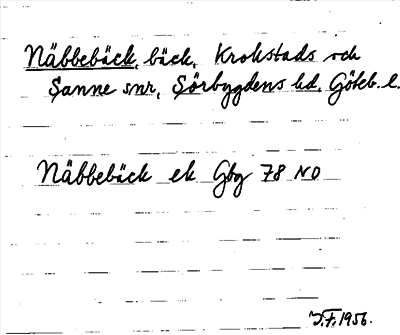 Näbbebäck, bäck, Krokstads och
Sanne snr, Sörbygdens hd. Göteb. l.
Näbbebäck ek Gbg 78 NO
J.F. 1956.